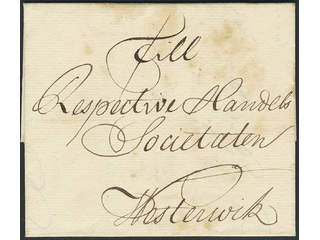 Till
Respective Handels
Societaten
Westerwik